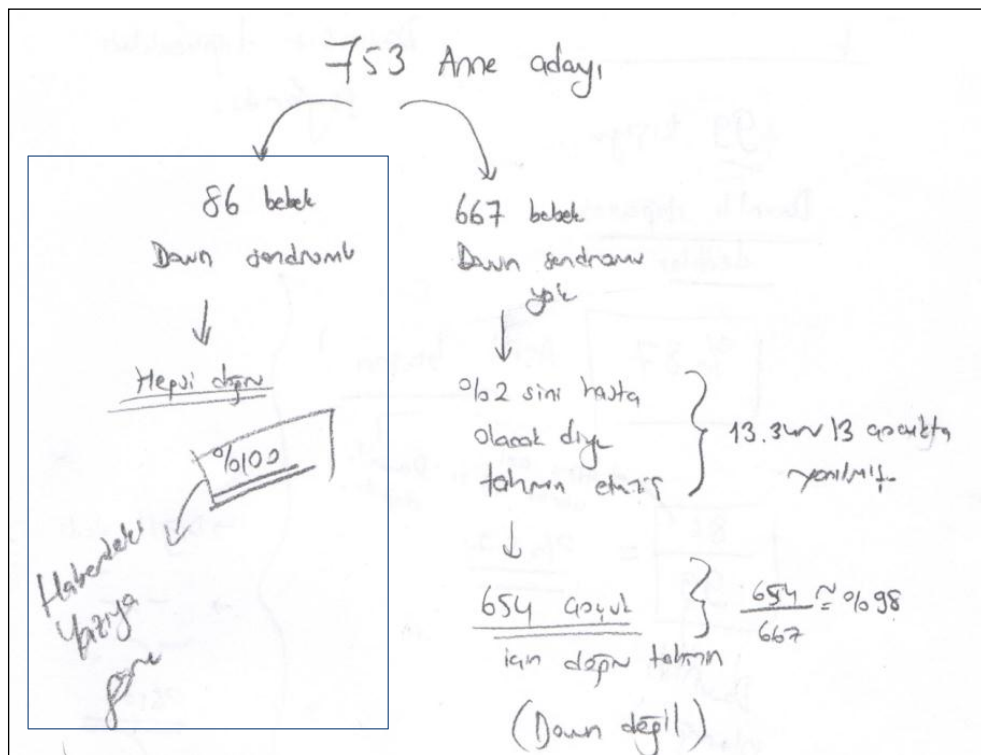 753 Anne adayı
86 bebek
Down sendromlu
Hepsi doğru
%100
Haberdeki
yazıya
göre
667 bebek
Down sendromu
yok
%2 sini hasta
olacak diye
tahmin etmiş
13.3 ~ 13 çocukta
yanılmış.
654 çocuk
için doğru tahmin
(Down değil)
654 ≅ %98
667